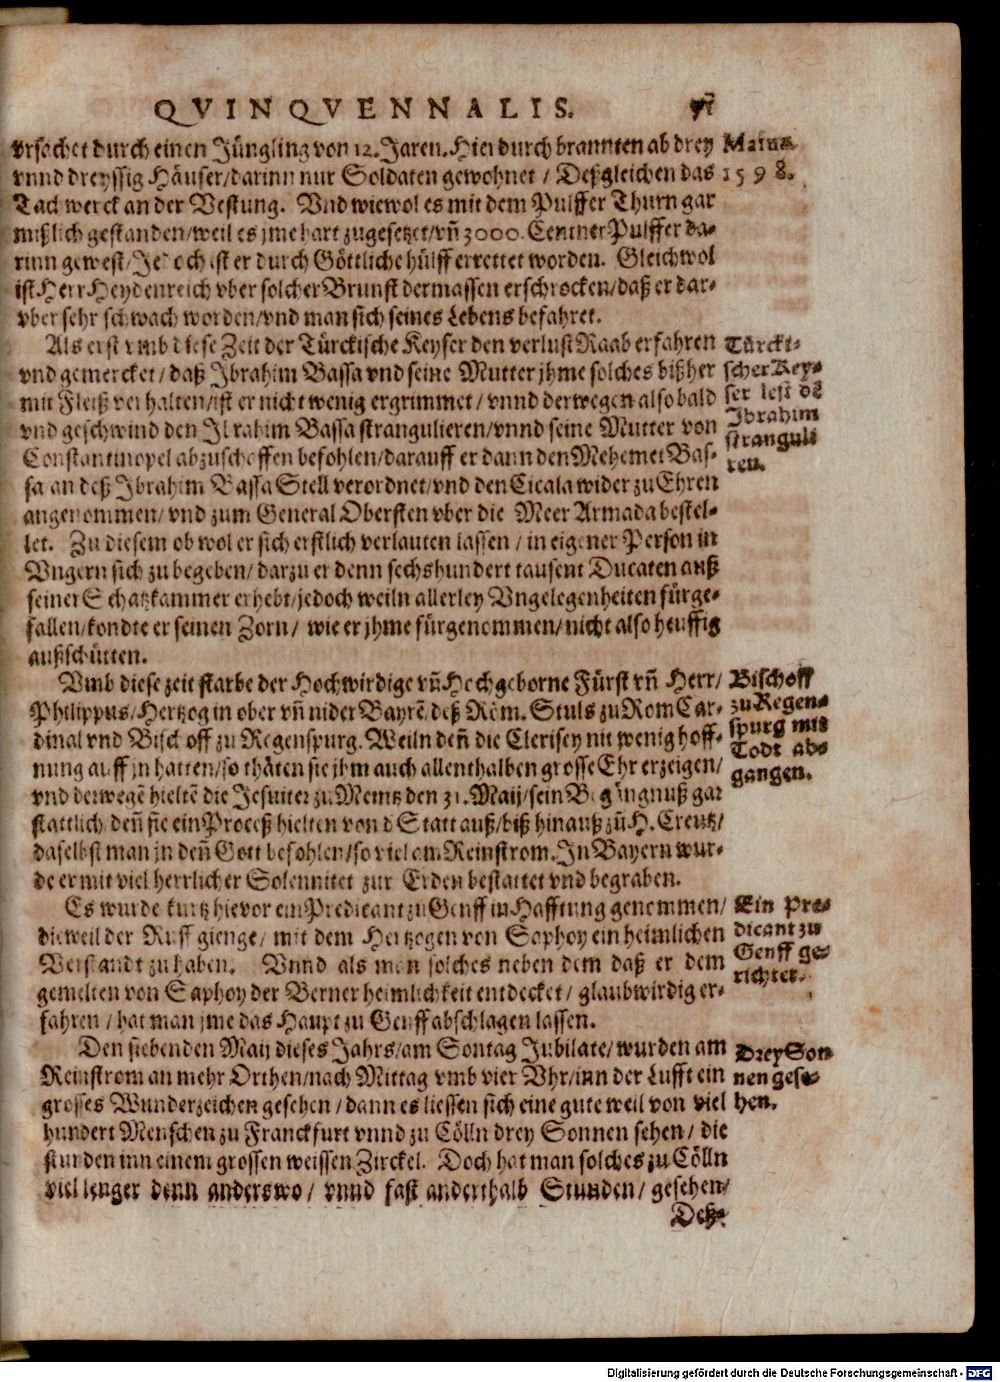 QVINQVENNALIS.
vrsachet durch einen Jüngling von 12. Jaren. Hierdurch brannten ab drey
vnnd dreyssig Häuser/ darinn nur Soldaten gewohnet / Deßgleichen das
1598.
Tachwerck an der Vestung. Vnd wiewol es mit dem Pulffer Thurn gar
mißlich gestanden/ weil es jme hart zugesetzet/ vn̄ 3000. Centner Pulffer da-
rinn gewest/ Jedoch ist er durch Göttliche hülff errettet worden. Gleichwol
ist Herr Heydenreich vber solcher Brunst dermassen erschrocken/ daß er dar-
vber sehr schwach worden/ vnd man sich seines Lebens befahret.
Als erst vmb diese Zeit der Türckische Keyser den verlust Raab erfahren
vnd gemercket/ daß Jbrahim Bassa vnd seine Mutter jhme solches bißher
mit Fleiß verhalten/ ist er nicht wenig ergrimmet/ vnnd derwegen alsobald
vnd geschwind den Jbrahim Bassa strangulieren/ vnnd seine Mutter von
Constantinopel abzuschaffen befohlen/ darauff er dann den Mehemet Bas-
sa an deß Jbrahim Bassa Stell verordnet/ vnd den Cicala wider zu Ehren
angenommen/ vnd zum General Obersten vber die Meer Armada bestel-
let. Zu diesem ob wol er sich erstlich verlauten lassen / in eigener Person in
Vngern sich zu begeben/ darzu er denn sechshundert tausent Ducaten auß
seiner Schatzkammer erhebt/ jedoch weiln allerley Vngelegenheiten fürge-
fallen/ kondte er seinen Zorn/ wie er jhme fürgenommen/ nicht also heuffig
außschütten.
Türcki-
scher Key-
ser lest dē
Jbrahim
stranguli
ren.
Vmb diese zeit starbe der Hochwirdige vn̄ Hochgeborne Fürst vn̄ Herr/
Philippus/ Hertzog in ober vn̄ nider Bayrē/ deß Röm. Stuls zu Rom Car-
dinal vnd Bischoff zu Regenspurg. Weiln den̄ die Clerisey nit wenig hoff-
nung auff jn hatten/ so thäten sie jhm auch allenthalben grosse Ehr erzeigen/
vnd derwegē hieltē die Jesuiter zu Meintz den 31. Maij/ sein Begängnuß gar
stattlich/ den̄ sie ein Proceß hielten von d Statt auß/ biß hinauß zū H. Creutz/
daselbst man jn den̄ Gott befohlen/ so viel am Reinstrom. Jn Bayern wur-
de er mit viel herrlicher Solennitet zur Erden bestattet vnd begraben.
Bischoff
zu Regen-
spurg mit
Todt abs
gangen.
Es wurde kurtz hievor ein Predicant zu Genff in Hafftung genommen/
dieweil der Ruff gienge/ mit dem Hertzogen von Saphoy ein heimlichen
Verstandt zu haben. Vnnd als man solches neben dem daß er dem
gemelten von Saphoy der Berner heimlichkeit entdecket/ glaubwirdig er-
fahren / hat man jme das Haupt zu Genff abschlagen lassen.
Ein Pre-
dicant zu
Genff ge-
richtet.
Den siebenden Maij dieses Jahrs/ am Sontag Jubilate/ wurden am
Reinstrom an mehr Orthen/ nach Mittag vmb vier Vhr/ inn der Lufft ein
grosses Wunderzeichen gesehen / dann es liessen sich eine gute weil von viel
hundert Menschen zu Franckfurt vnnd zu Cölln drey Sonnen sehen/ die
stunden inn einem grossen weissen Zirckel. Doch hat man solches zu Cölln
viel lenger denn anderswo/ vnnd fast anderthalb Stunden/ gesehen/
Drey Son
nen gese-
hen.
Deß-
Digitalisierung gefördert durch die Deutsche Forschungsgemeinschaft - DFG